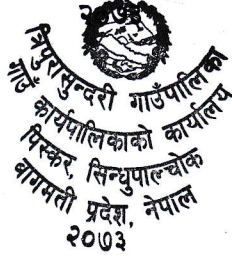 त्रिपुरासुन्दरी गाउँपालिका
गाउँ कार्यपालिकाको कार्यालय
पिस्कर, सिन्धुपाल्चोक
वागमती प्रदेश, नेपाल
२०७३